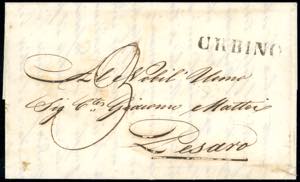 URBINO
3
Al Nobil Uomo
Sig Cte Giacomo Mattei
Pesaro